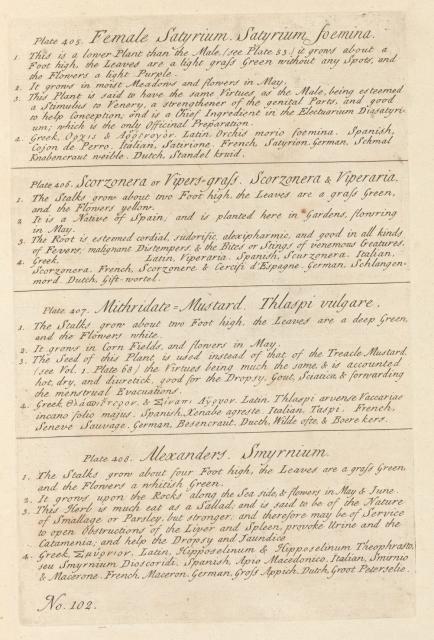 Plate 405. Female Satyrium. Satyrium foemina.
1. This is a lower Plant than the Male, (see Plate 53.) it grows about a
Foot high, the Leaves are a light grass Green without any Spots, and
the Flowers a light Purple.
2. It grows in moist Meadows and flowers in May.
3. This Plant is said to have the same Virtues as the Male, being esteemed
a Stimulus to Venery, a strengthener of the genital Parts, and good
to help Conception; and is a Chief Ingredient in the Electuarium Diasatyri-
um; which is the only Officinal Preparation.
4. Greek, Latin. Orchis morio foemina. Spanish,
Cojon de Perro. Italian, Satirione. French, Satyrion. German, Schmal
Knabencraut weible. Dutch, Standel kruid.
Plate 406. Scorzonera or Vipers-grass. Scorzonera & Viperaria.
1. The Stalks grow about two Foot high, the Leaves are a grass Green,
and the Flowers yellow.
2. It is a Native of Spain, and is planted here in Gardens, flowring
in May.
3. The Root is esteemed cordial, sudorific, alexipharmic, and good in all kinds
of Fevers, malignant Distempers, & the Bites or Stings of venemous Creatures.
4. Greek, Latin, Viperaria. Spanish, Scurzonera. Italian,
Scorzonera. French, Scorzonere & Cercifi d'Espagne. German, Schlangen-
mord. Dutch, Gift-wortel.
Plate 407. Mithridate-Mustard. Thlaspi vulgare.
1. The Stalks grow about two Foot high, the Leaves are a deep Green,
and the Flowers white.
2. It grows in Corn Fields, and flowers in May.
3. The Seed of this Plant is used instead of that of the Treacle Mustard,
(see Vol. 1. Plate 68) the Virtues being much the same, & is accounted
hot, dry, and diuretick, good for the Dropsy, Gout, Sciatica, & forwarding
the menstrual Evacuations.
4. Greek, & Σίνηπι Αγριον. Latin. Thlaspi arvense Vaccariae
incano folio majus. Spanish, Xenabe agreste. Italian, Taspi. French,
Seneve Sauvage. German, Besencraut. Ducth, Wilde ofte, & Boere kers.
Plate 408. Alexanders. Smyrnium.
1. The Stalks grow about four Foot high, the Leaves are a grass Green
and the Flowers a whitish Green.
2. It grows upon the Rocks along the Sea side, & flowers in May & June.
3. This Herb is much eat as a Sallad, and is said to be of the Nature
of Smallage or Parsley, but stronger, and therefore may be of Service
to open Obstructions of the Liver and Spleen, provoke Urine and the
Catamenia; and help the Dropsy and Jaundice
4. Greek, Σμύρνιον. Latin, Hipposelinum & Hipposelinum Theophrasto,
seu Smyrnium Dioscorid. Spanish, Apio Macedonico, Italian, Smirnio
& Macerone. French, Maceron. German, Gross Appich. Dutch, Groot Peterselie.
No. 102.